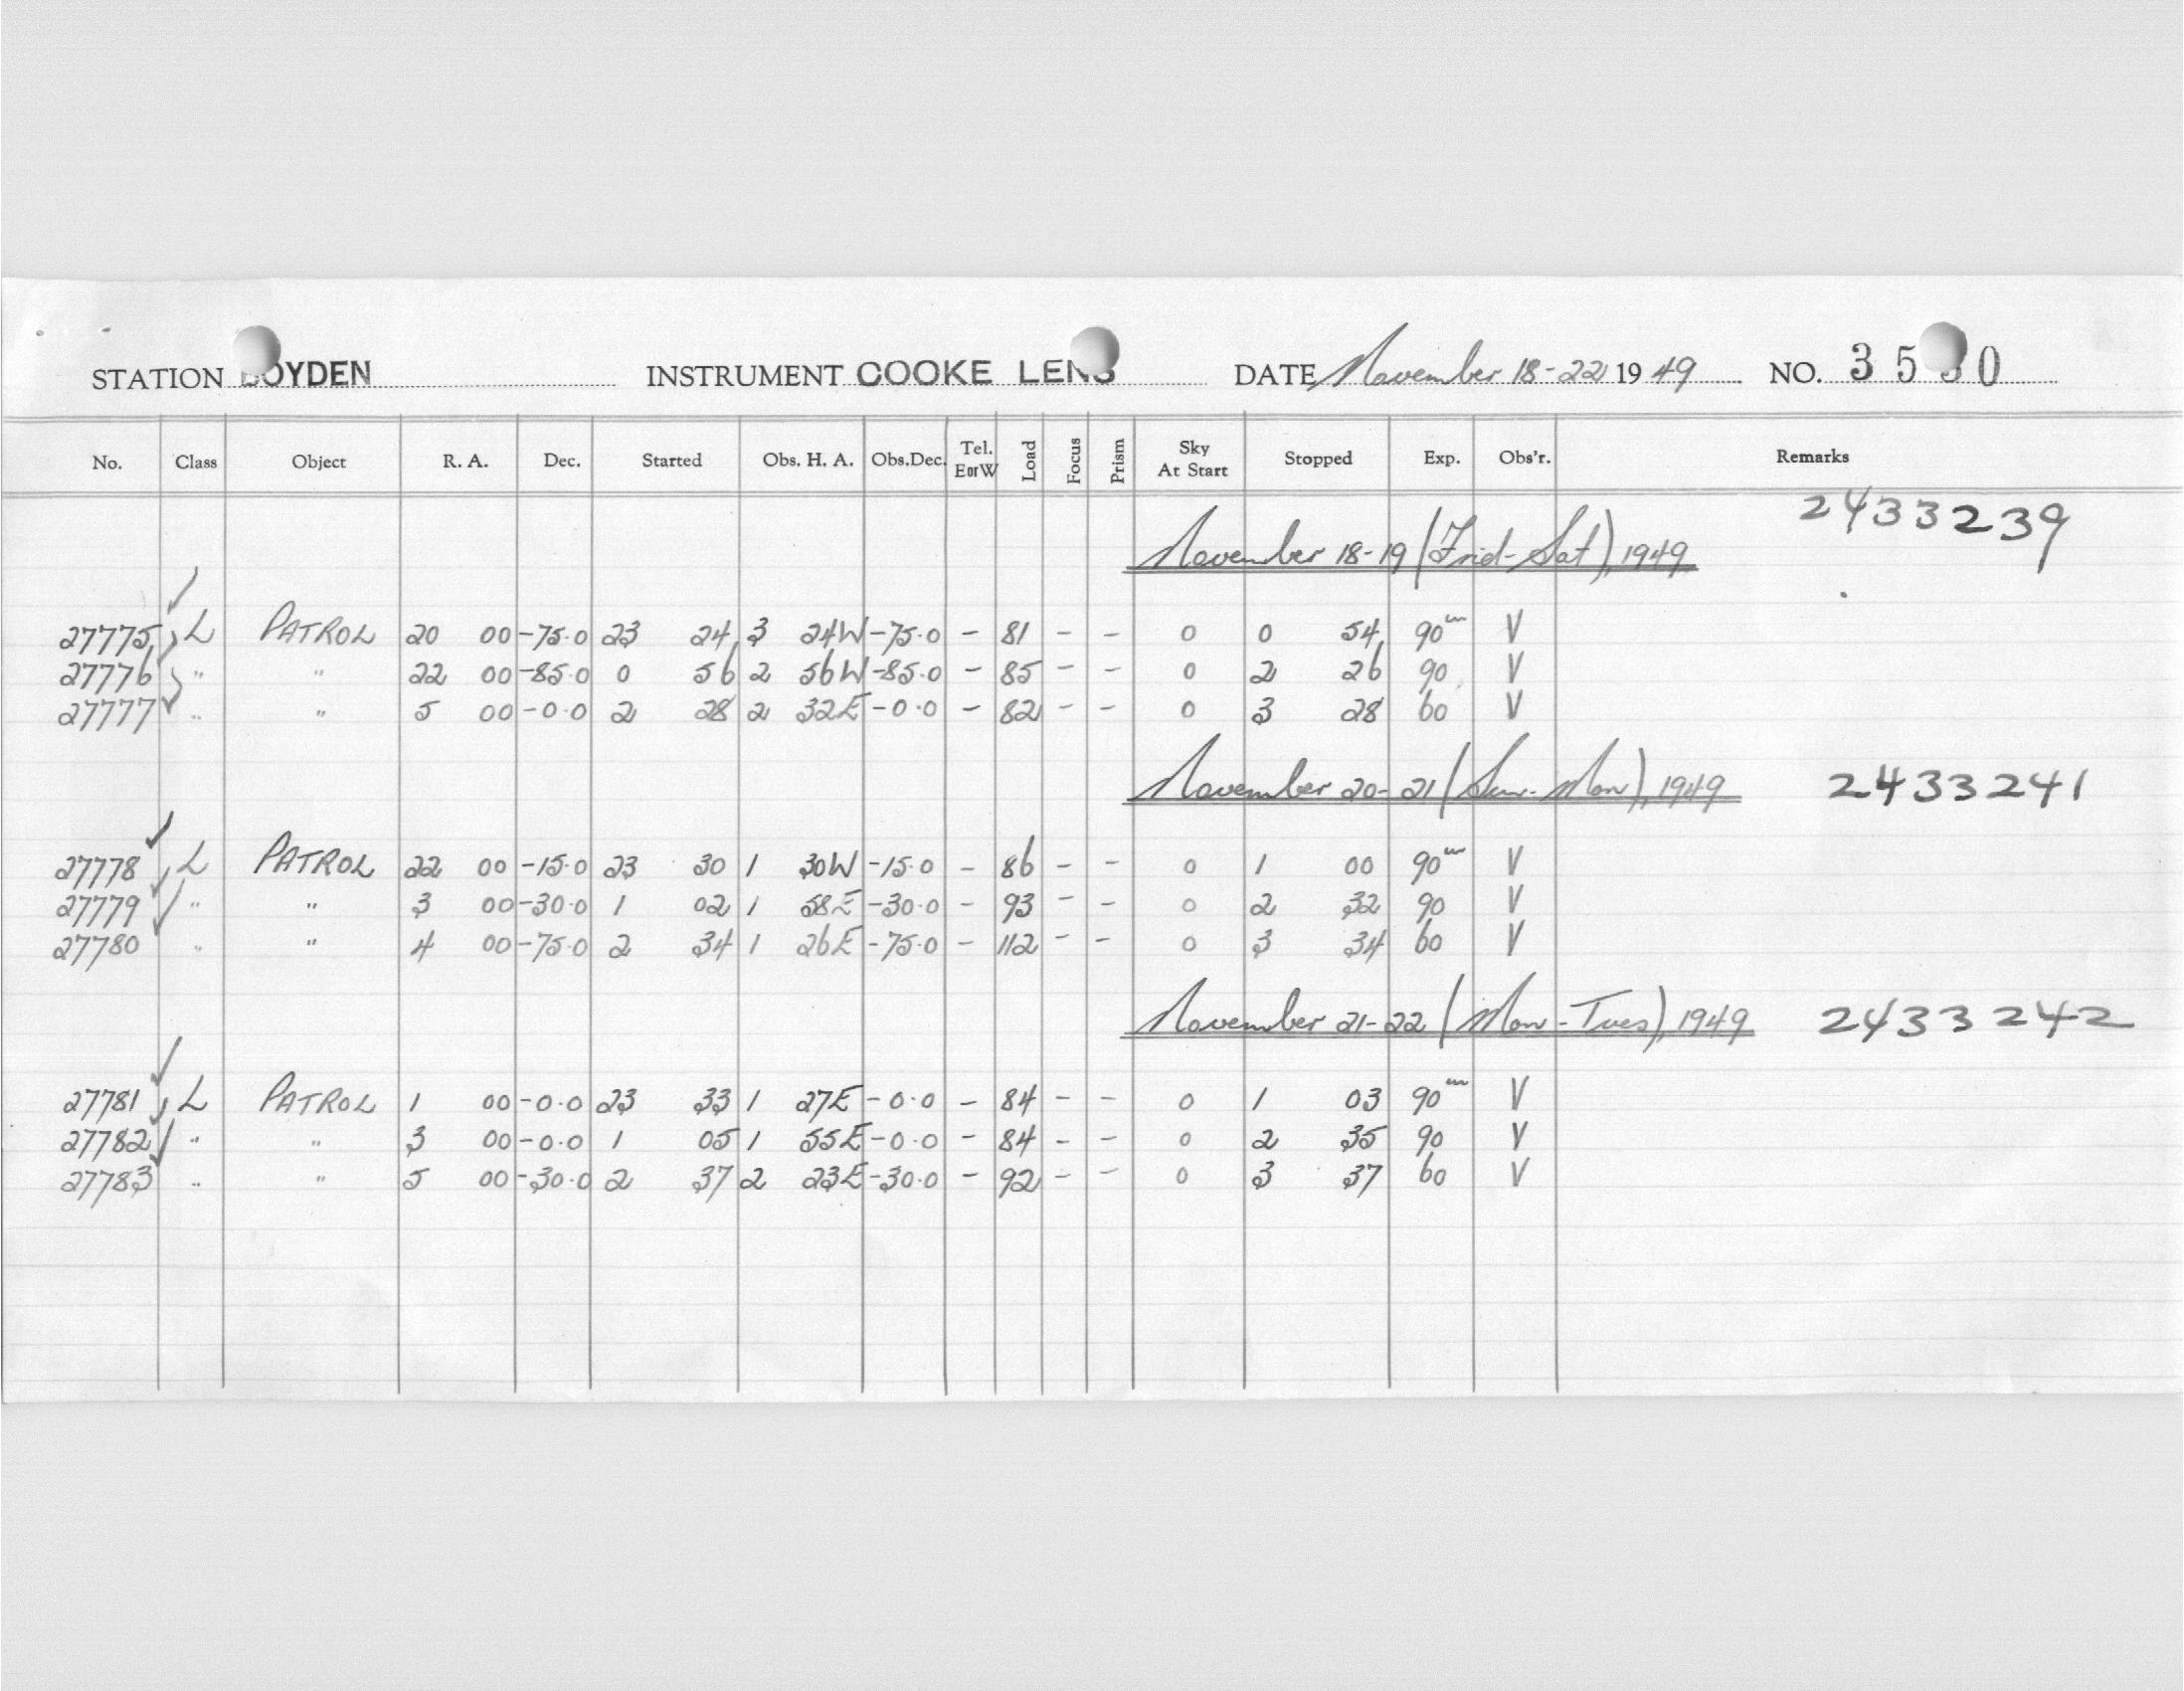 STATION BOYDEN INSTRUMENT COOKE LENS DATE November 18-22 1949 NO. 3530
No. Class Object R. A. Dec. Started Obs. H. A. Obs.Dec. Tel. E or W Load Focus Prism Sky At Start Stopped Exp. Obs'r. Remarks
2433239
November 18-19 (Frid-Sat), 1949
27775 L PATROL 20 00 -75.0 23 24 3 24W -75.0 - 81 - - 0 0 54 90m V
27776 " " 22 00 -85.0 0 56 2 56W -85.0 - 85 - - 0 2 26 90 V
27777 " " 5 00 -0.0 2 28 2 32E -0.0 - 82 - - 0 3 28 60 V
November 20-21 (Sun-Mon), 1949 2433241
27778 L PATROL 22 00 -15.0 23 30 1 30W -15.0 - 86 - - 0 1 00 90m V
27779 " " 3 00 -30.0 1 02 1 58E -30.0 - 93 - - 0 2 32 90 V
27780 " " 4 00 -75.0 2 34 1 26E -75.0 - 112 - - 0 3 34 60 V
November 21-22 (Mon-Tues), 1949 2433242
27781 L PATROL 1 00 -0.0 23 33 1 27E -0.0 - 84 - - 0 1 03 90m V
27782 " " 3 00 -0.0 1 05 1 55E -0.0 - 84 - - 0 2 35 90 V
27783 " " 5 00 -30.0 2 37 2 23E -30.0 - 92 - - 0 3 37 60 V